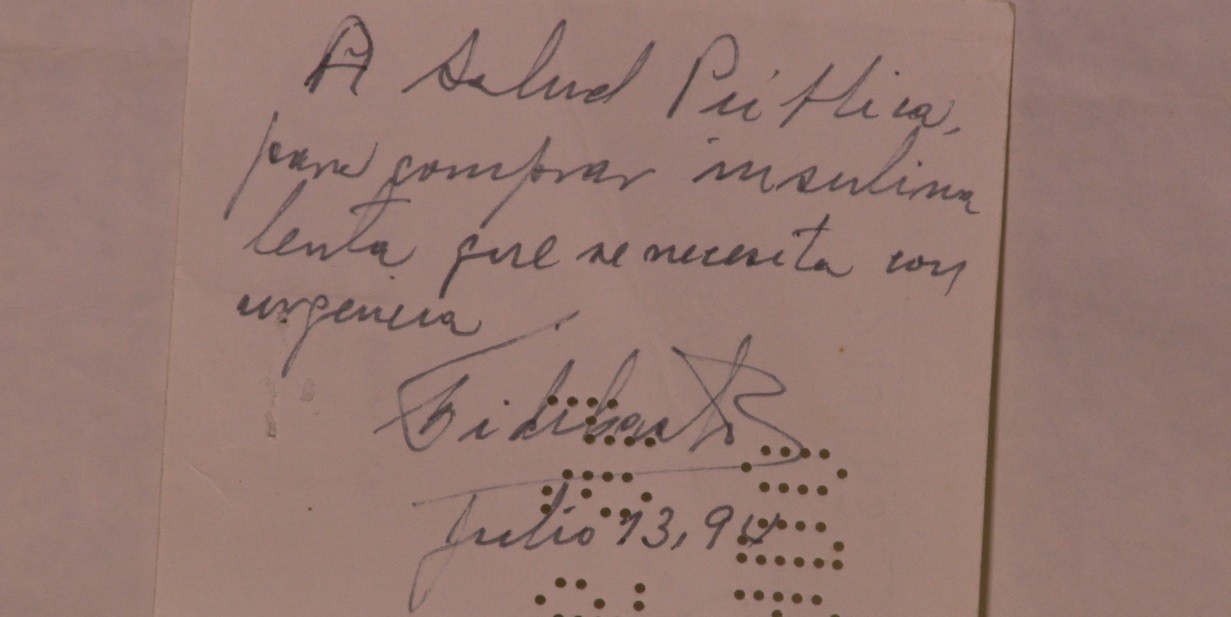 A Salud Pública,
para comprar insulina
lenta que se necesita con
urgencia
Fidel Castro
Julio 13, 94